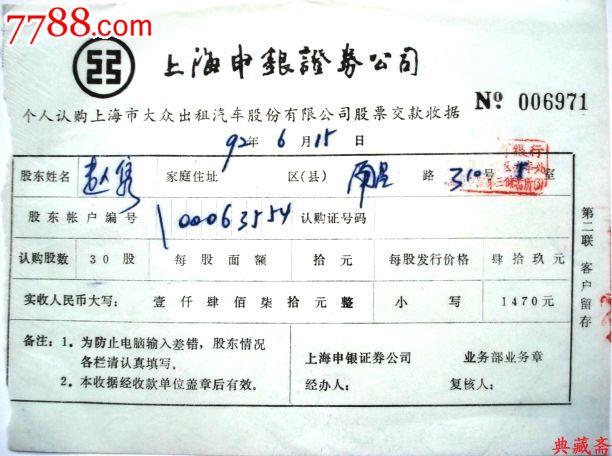 7788.com
上海申銀證券公司
个人认购上海市大众出租汽车股份有限公司股票交款收据 Nº 006971
92年 6月 15日
股东姓名 赵 家庭住址 区(县) 南昌 路 310号 室
股东帐户编号 00063554 认购证号码
认购股数 30股 每股面额 拾元 每股发行价格 肆拾玖元
实收人民币大写: 壹仟肆佰柒拾元整 小写 1470元
备注: 1. 为防止电脑输入差错,股东情况
各栏请认真填写。
2. 本收据经收款单位盖章后有效。
上海申银证券公司 业务部业务章
经办人: 复核人:
第二联 客户留存
银行
典藏斋